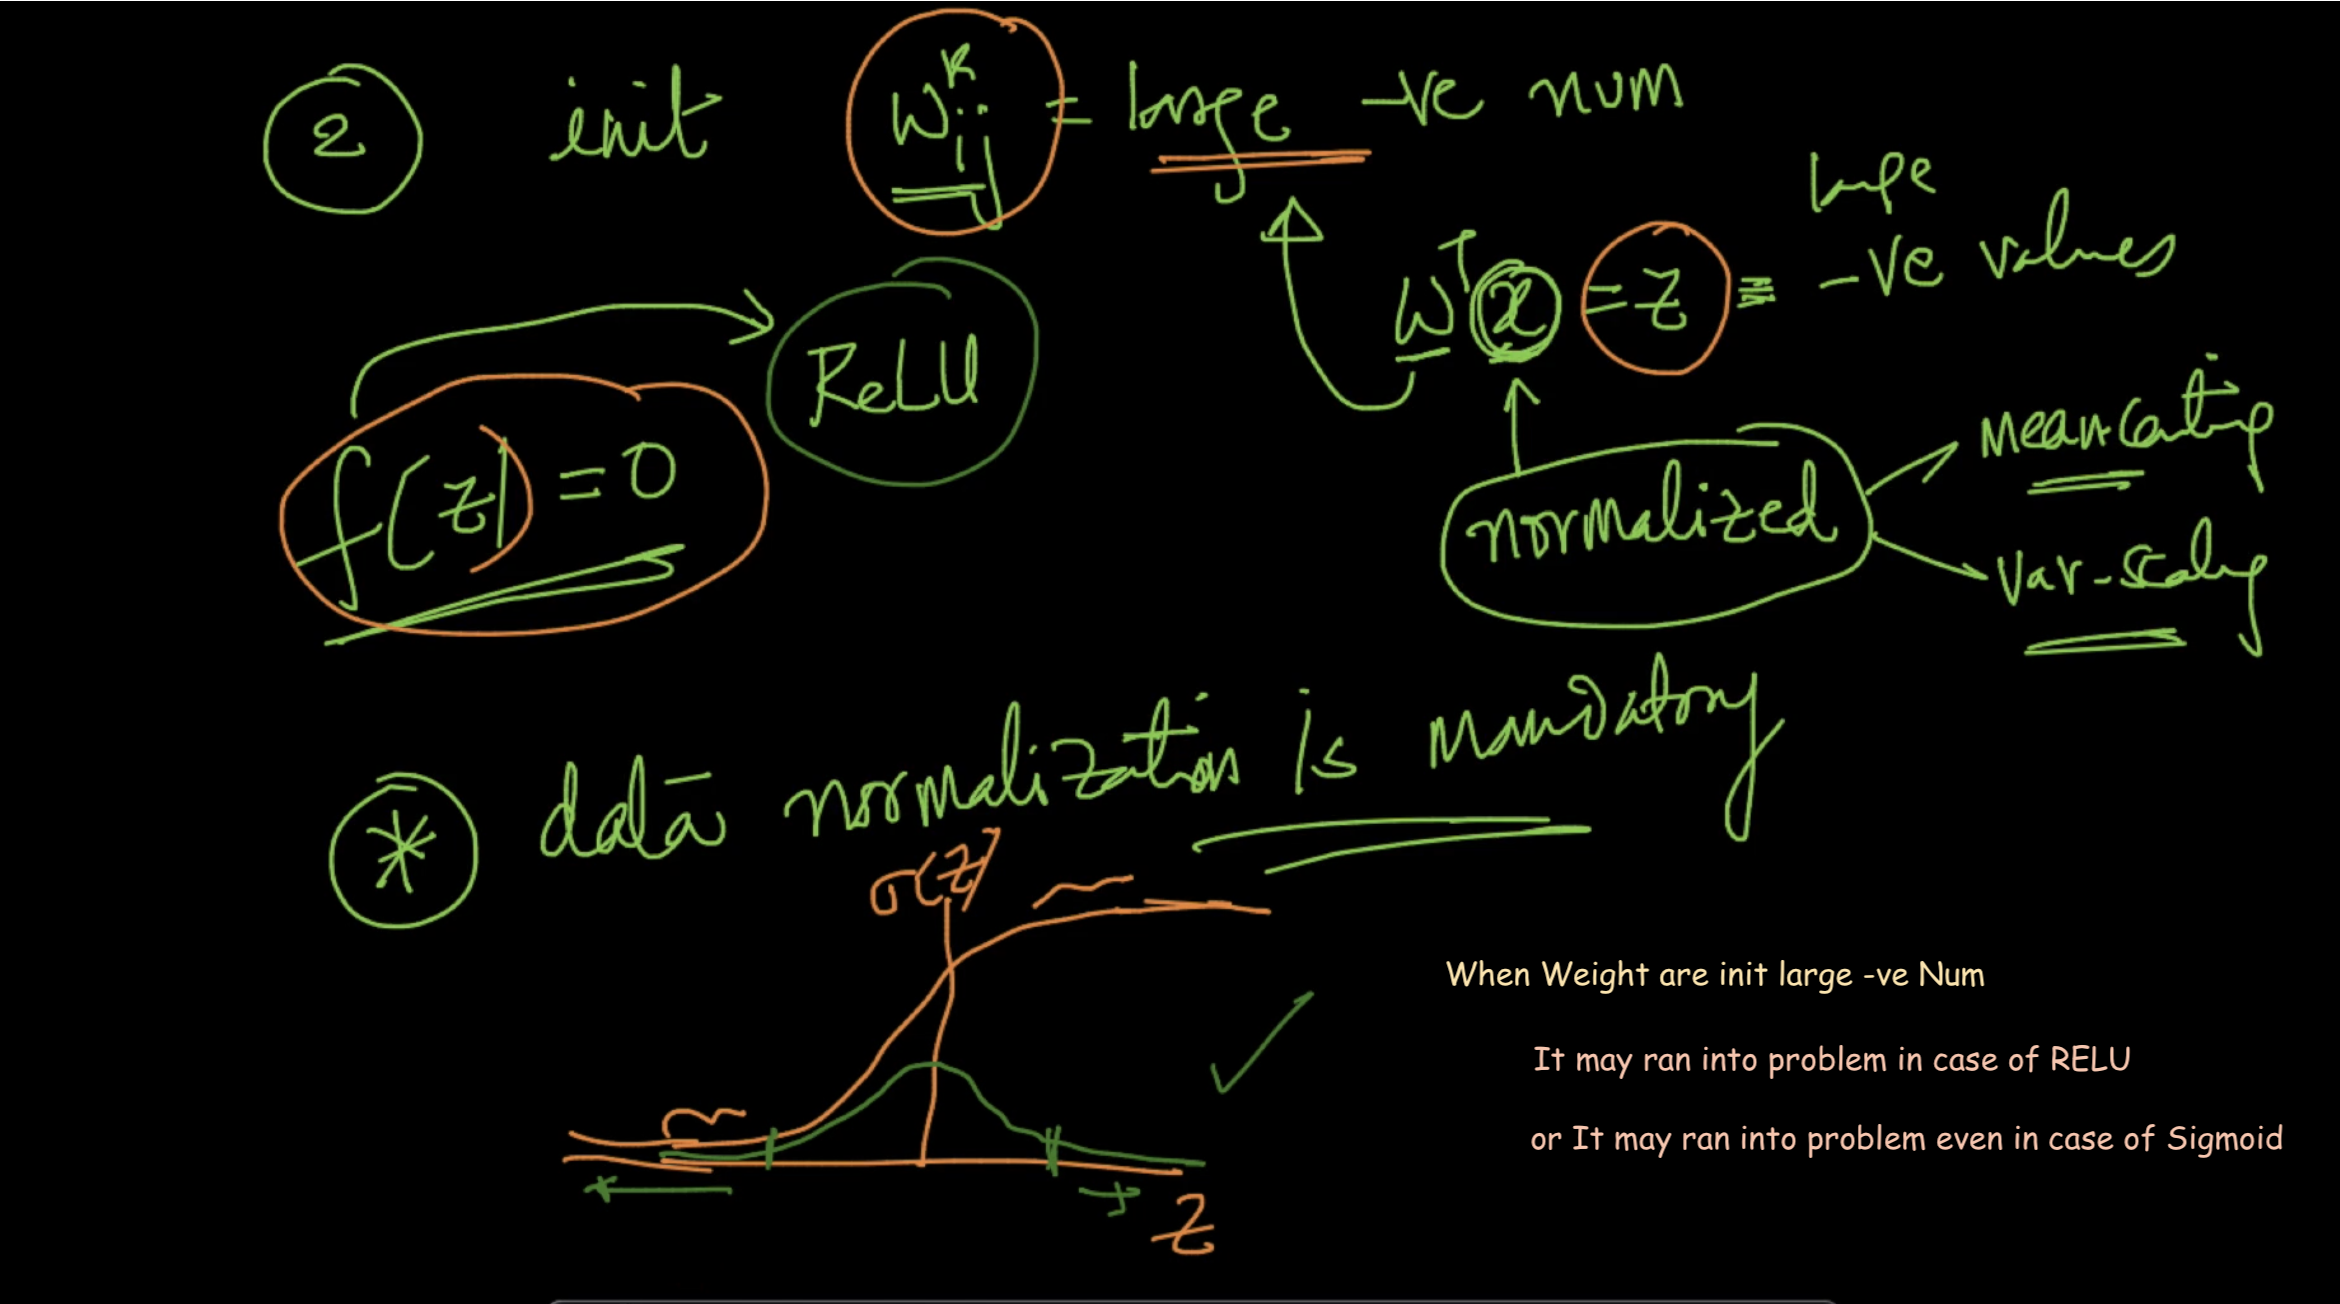 2 init w_ij^k = large -ve num
large
w^T x = z ≡ -ve values
ReLU
f(z) = 0
mean-centing
normalized
var-scaling
* data normalization is mandatory
σ(z)
When Weight are init large -ve Num
It may ran into problem in case of RELU
or It may ran into problem even in case of Sigmoid
z